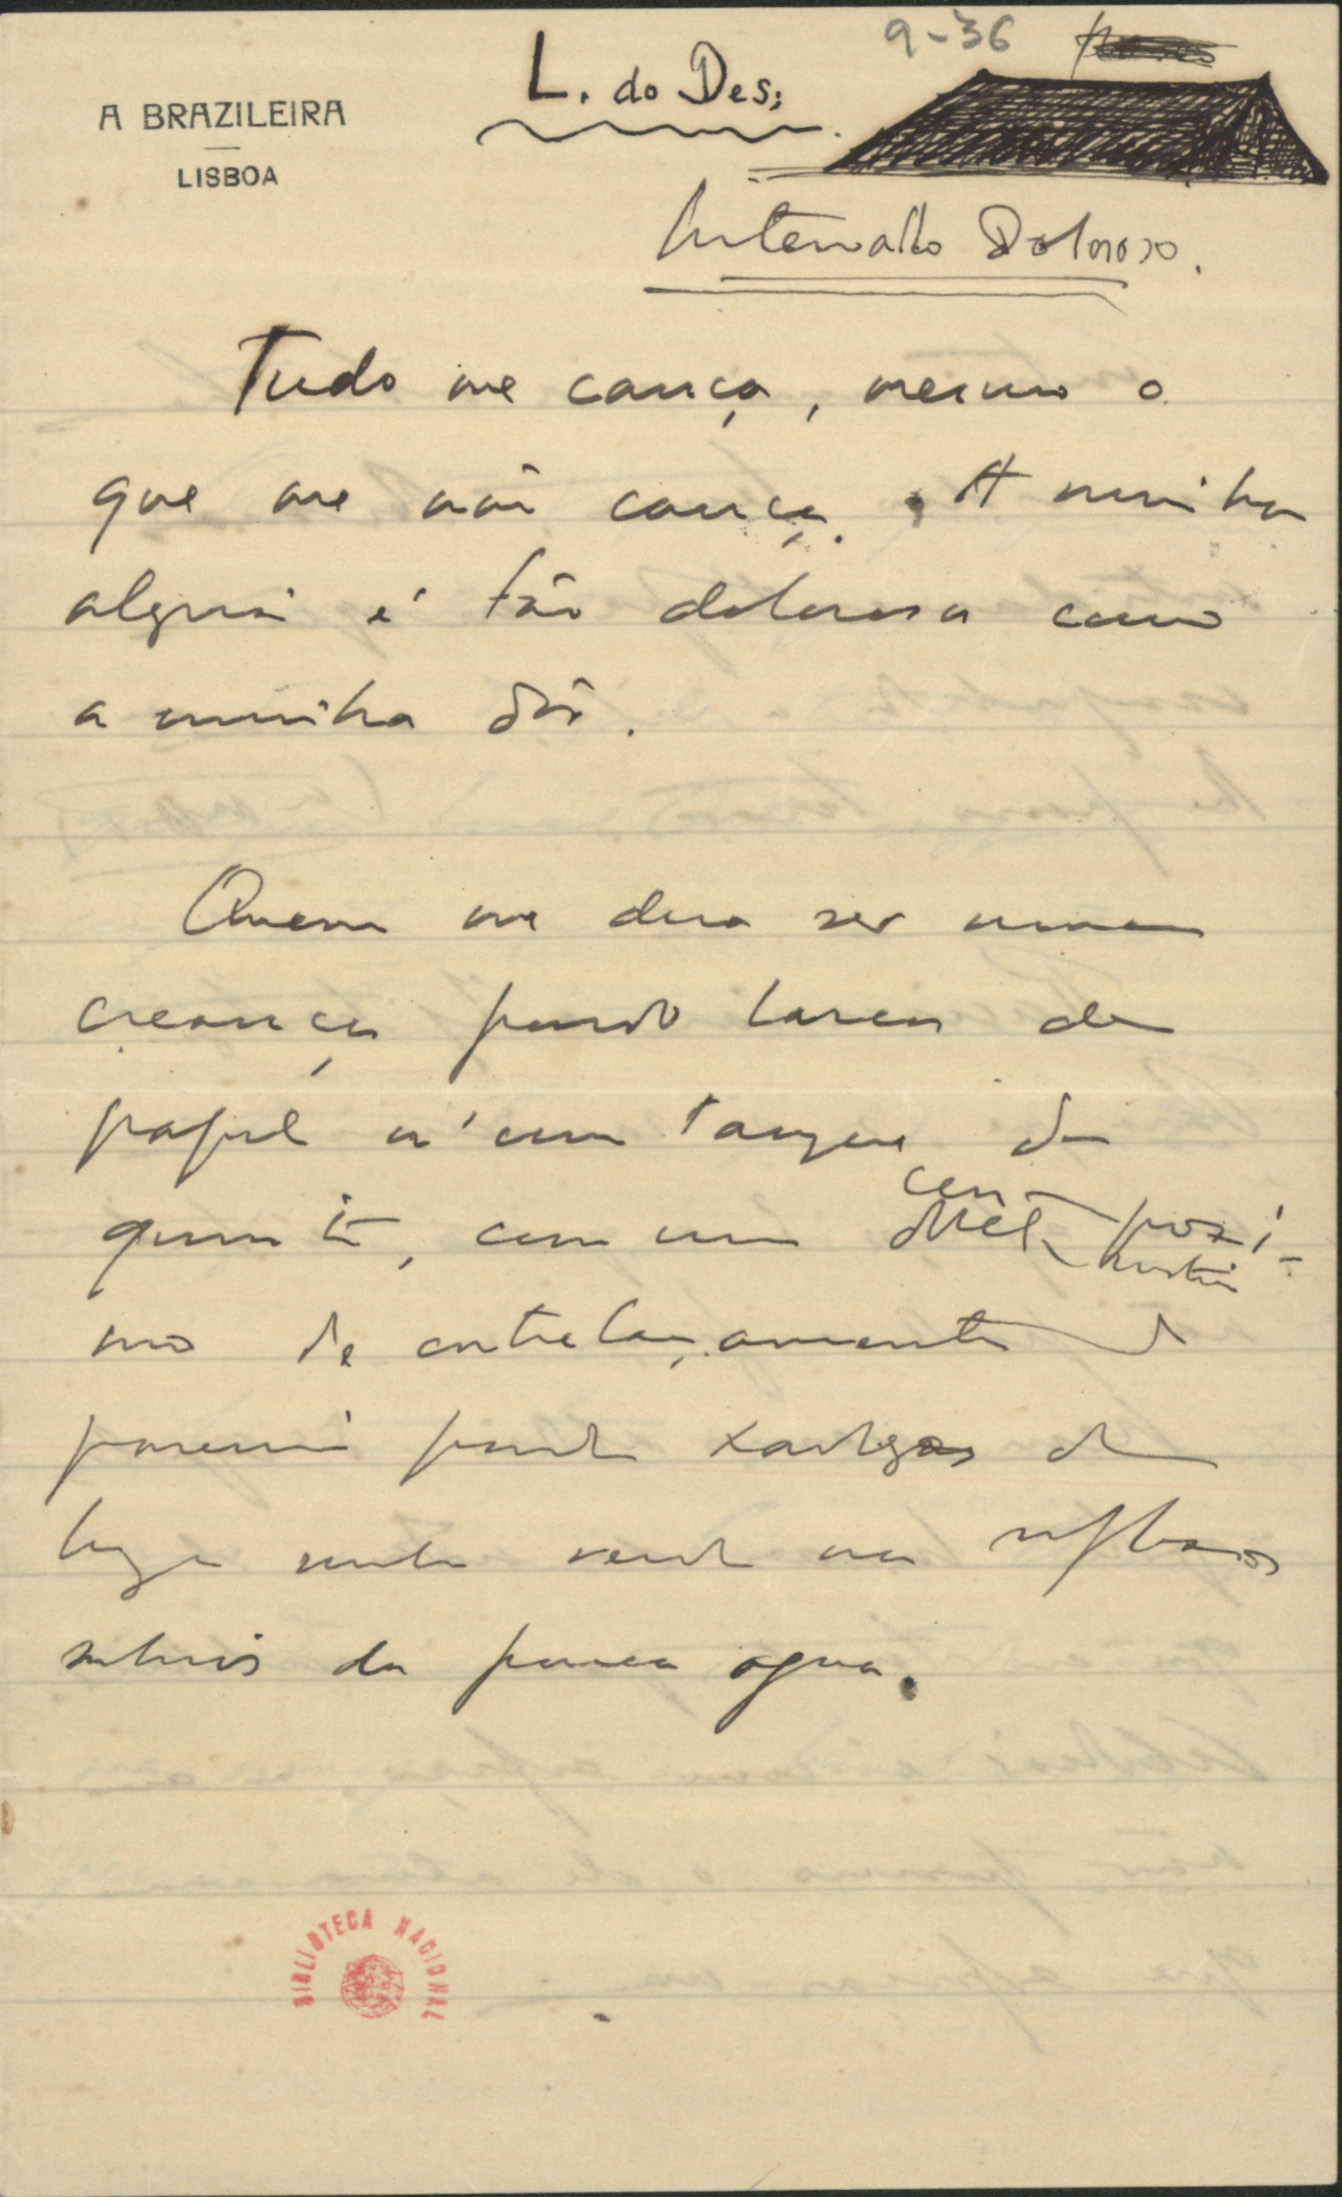 A BRAZILEIRA
LISBOA
9-36
L. do Des;
Intervallo Doloroso.
Tudo me cança, mesmo o
que me não cança. A minha
alegria é tão dolorosa como
a minha dôr.
Quem me dera ser uma
creança pondo barcos de
papel n'um tanque de
quinta, com um docel
de entrelaçamentos de
parreira pondo xadrezes de
luz e sombra verde nos reflexos
sombrios da pouca agua.
BIBLIOTECA NACIONAL